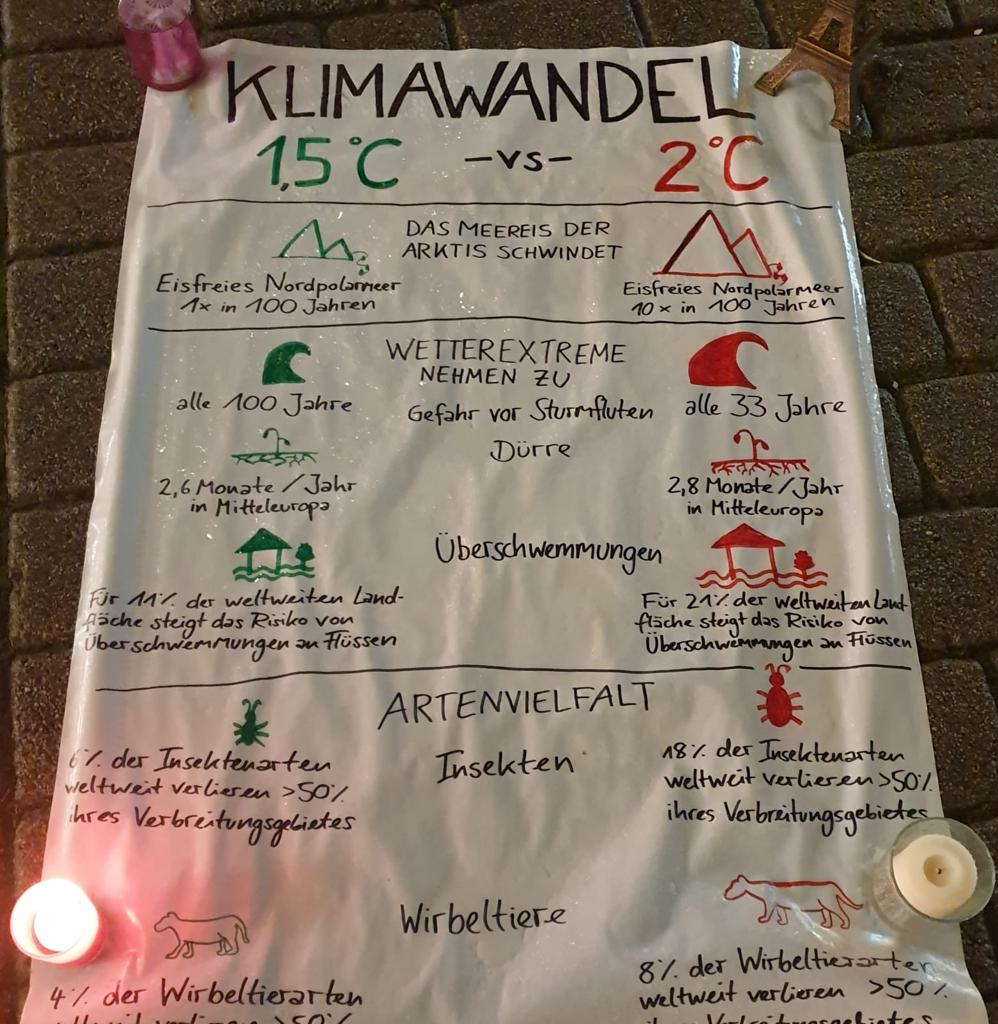 KLIMAWANDEL
1,5°C -vs- 2°C
DAS MEEREIS DER
ARKTIS SCHWINDET
Eisfreies Nordpolarmeer
1x in 100 Jahren
Eisfreies Nordpolarmeer
10x in 100 Jahren
WETTEREXTREME
NEHMEN ZU
alle 100 Jahre
Gefahr vor Sturmfluten
alle 33 Jahre
Dürre
2,6 Monate/Jahr
in Mitteleuropa
2,8 Monate/Jahr
in Mitteleuropa
Überschwemmungen
Für 11% der weltweiten Land-
fläche steigt das Risiko von
Überschwemmungen an Flüssen
Für 21% der weltweiten Land-
fläche steigt das Risiko von
Überschwemmungen an Flüssen
ARTENVIELFALT
Insekten
6% der Insektenarten
weltweit verlieren >50%
ihres Verbreitungsgebietes
18% der Insektenarten
weltweit verlieren >50%
ihres Verbreitungsgebietes
Wirbeltiere
4% der Wirbeltierarten
weltweit verlieren >50%
8% der Wirbeltierarten
weltweit verlieren >50%
ihres Verbreitungsgebietes